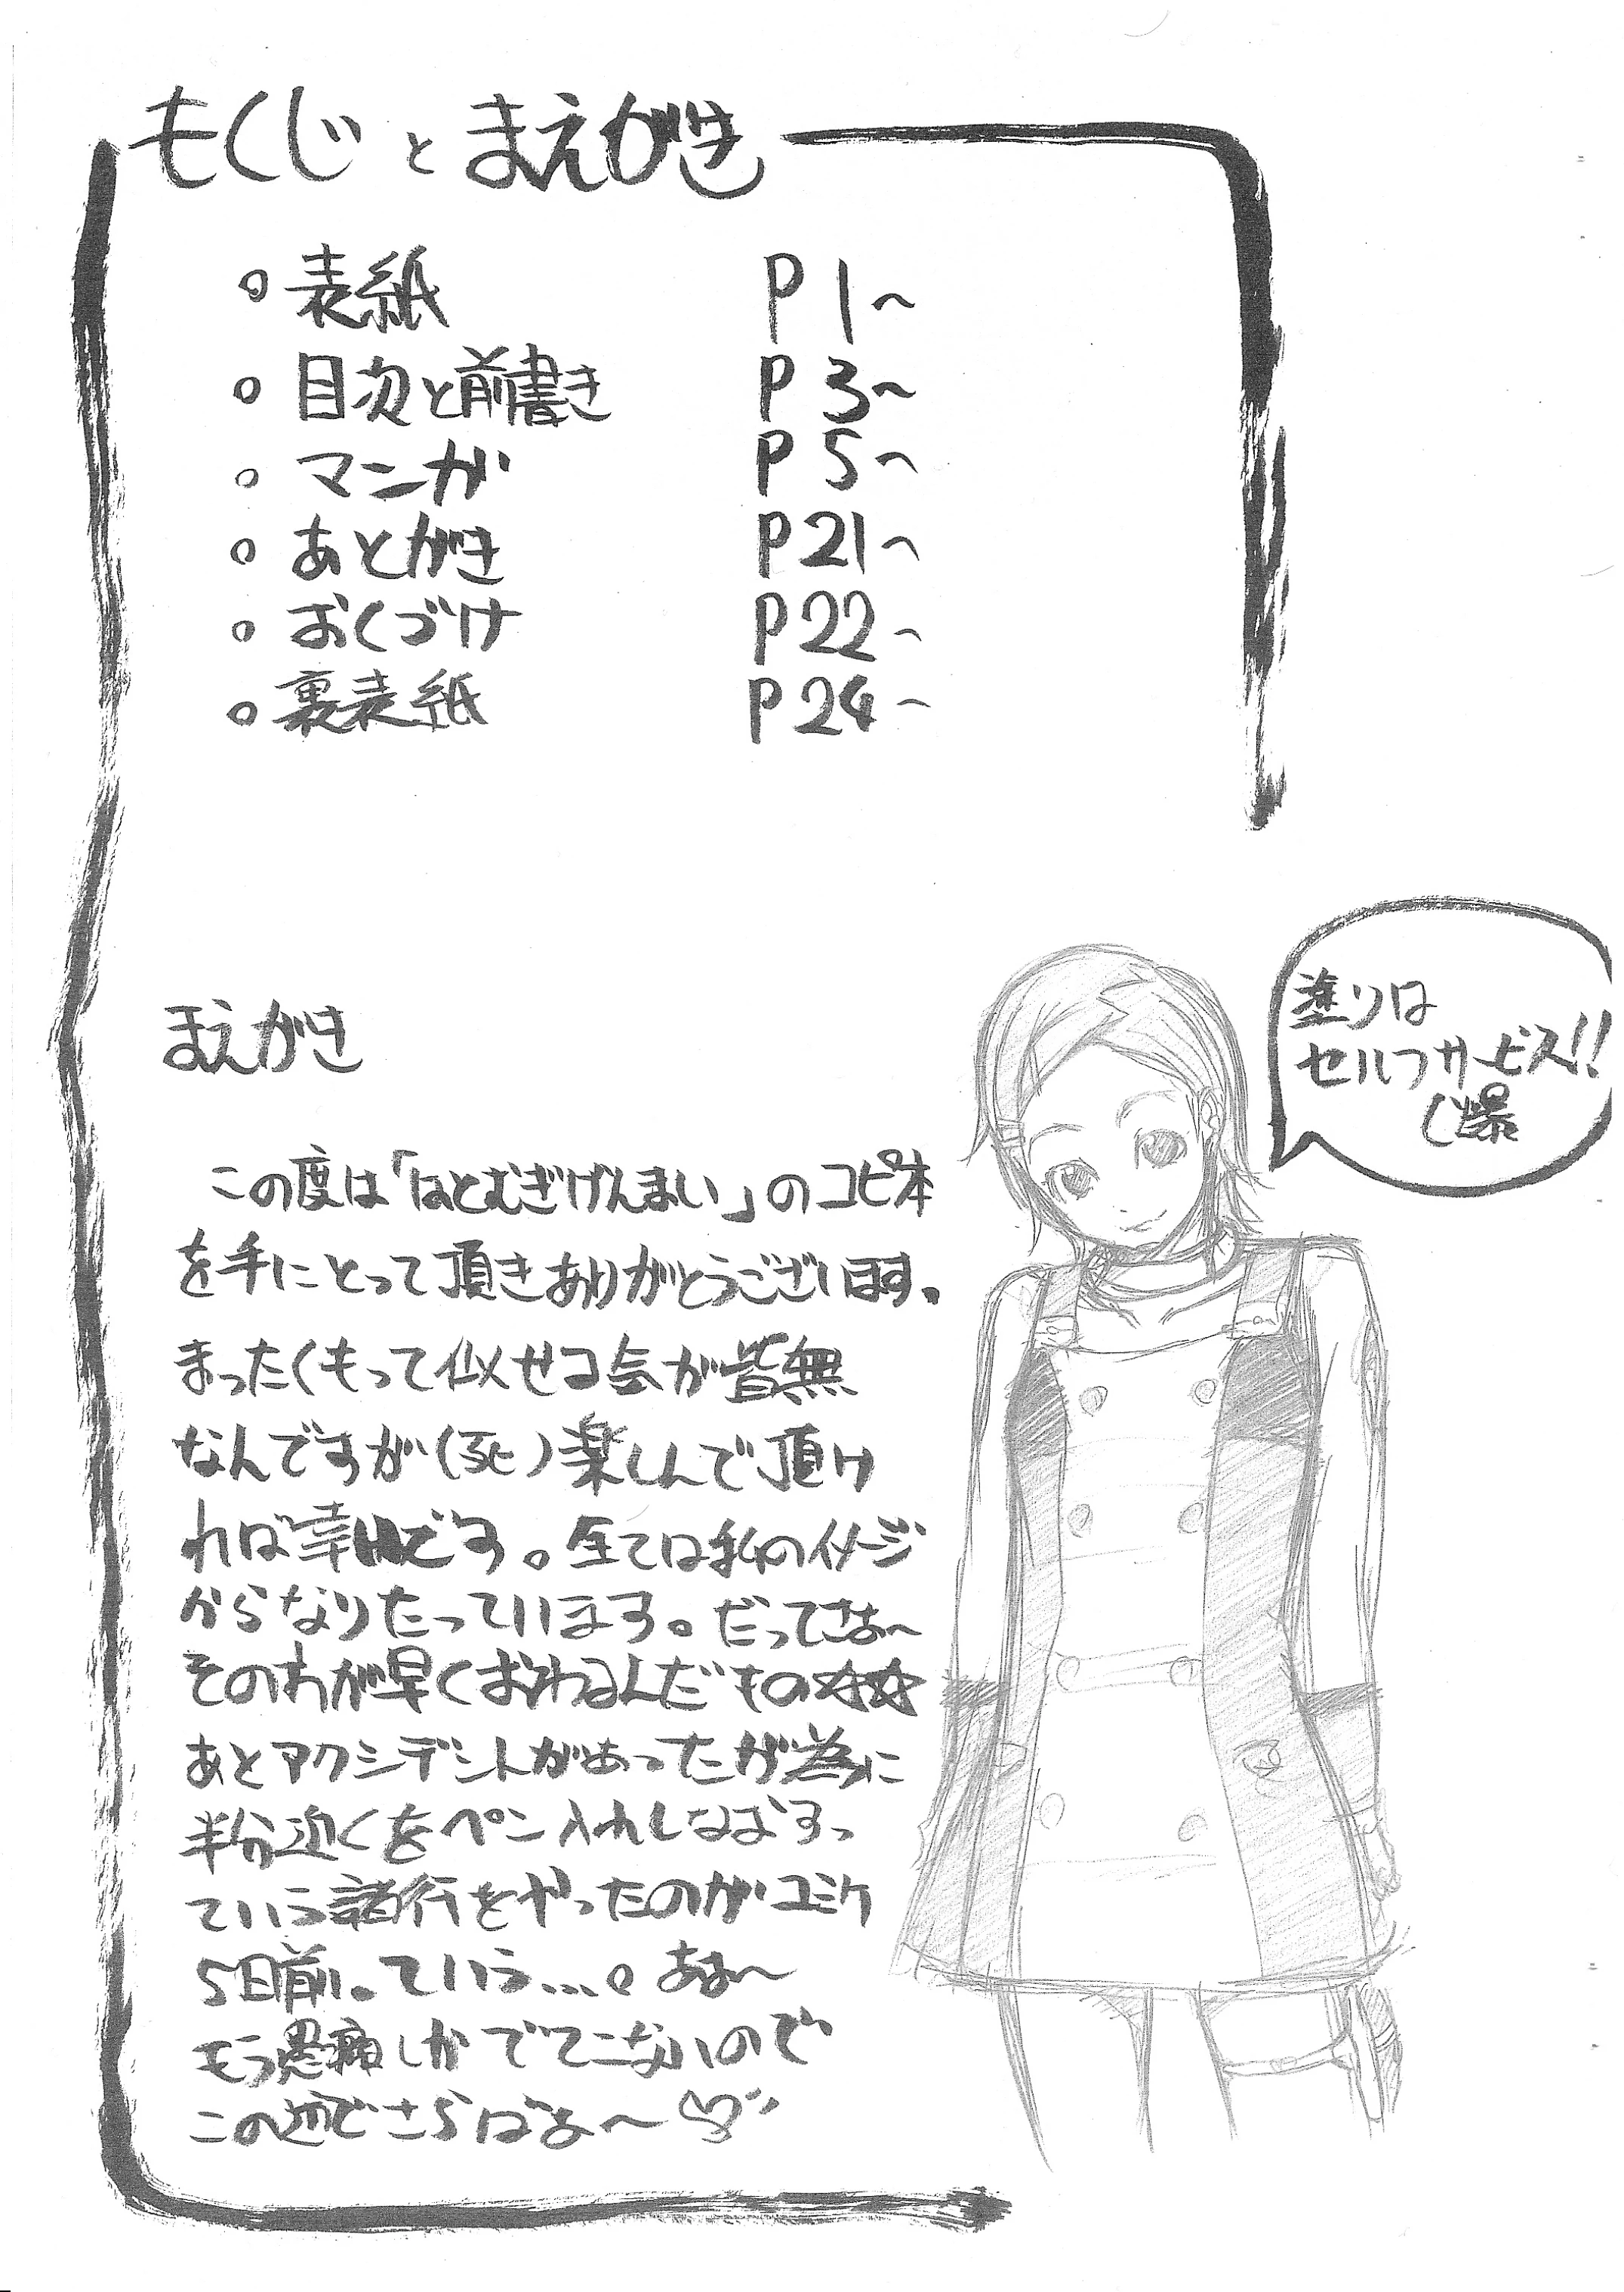 もくじとまえがき
。表紙 P1~
。目次と前書き P3~
。マンガ P5~
。あとがき P21~
。おくづけ P22~
。裏表紙 P24~
まえがき
この度は「はとむぎげんまい」のコピ本
を手にとって頂きありがとうございます。
まったくもって似せコ会が皆無
なんですが(死)楽しんで頂け
れば幸いです。全ては私のイメージ
からなりたっています。だってさぁ~
そのわが早くおわるんだもの☆☆
あとアクシデントがあったが為に
半分近くをペン入れしなおすっ
ていう諸行をやったのがコミケ
5日前。ていう...。あぁ~
もう愚痴しかでてこないので
この辺でさらばぁ~
塗りは
セルフサービス!!
(爆